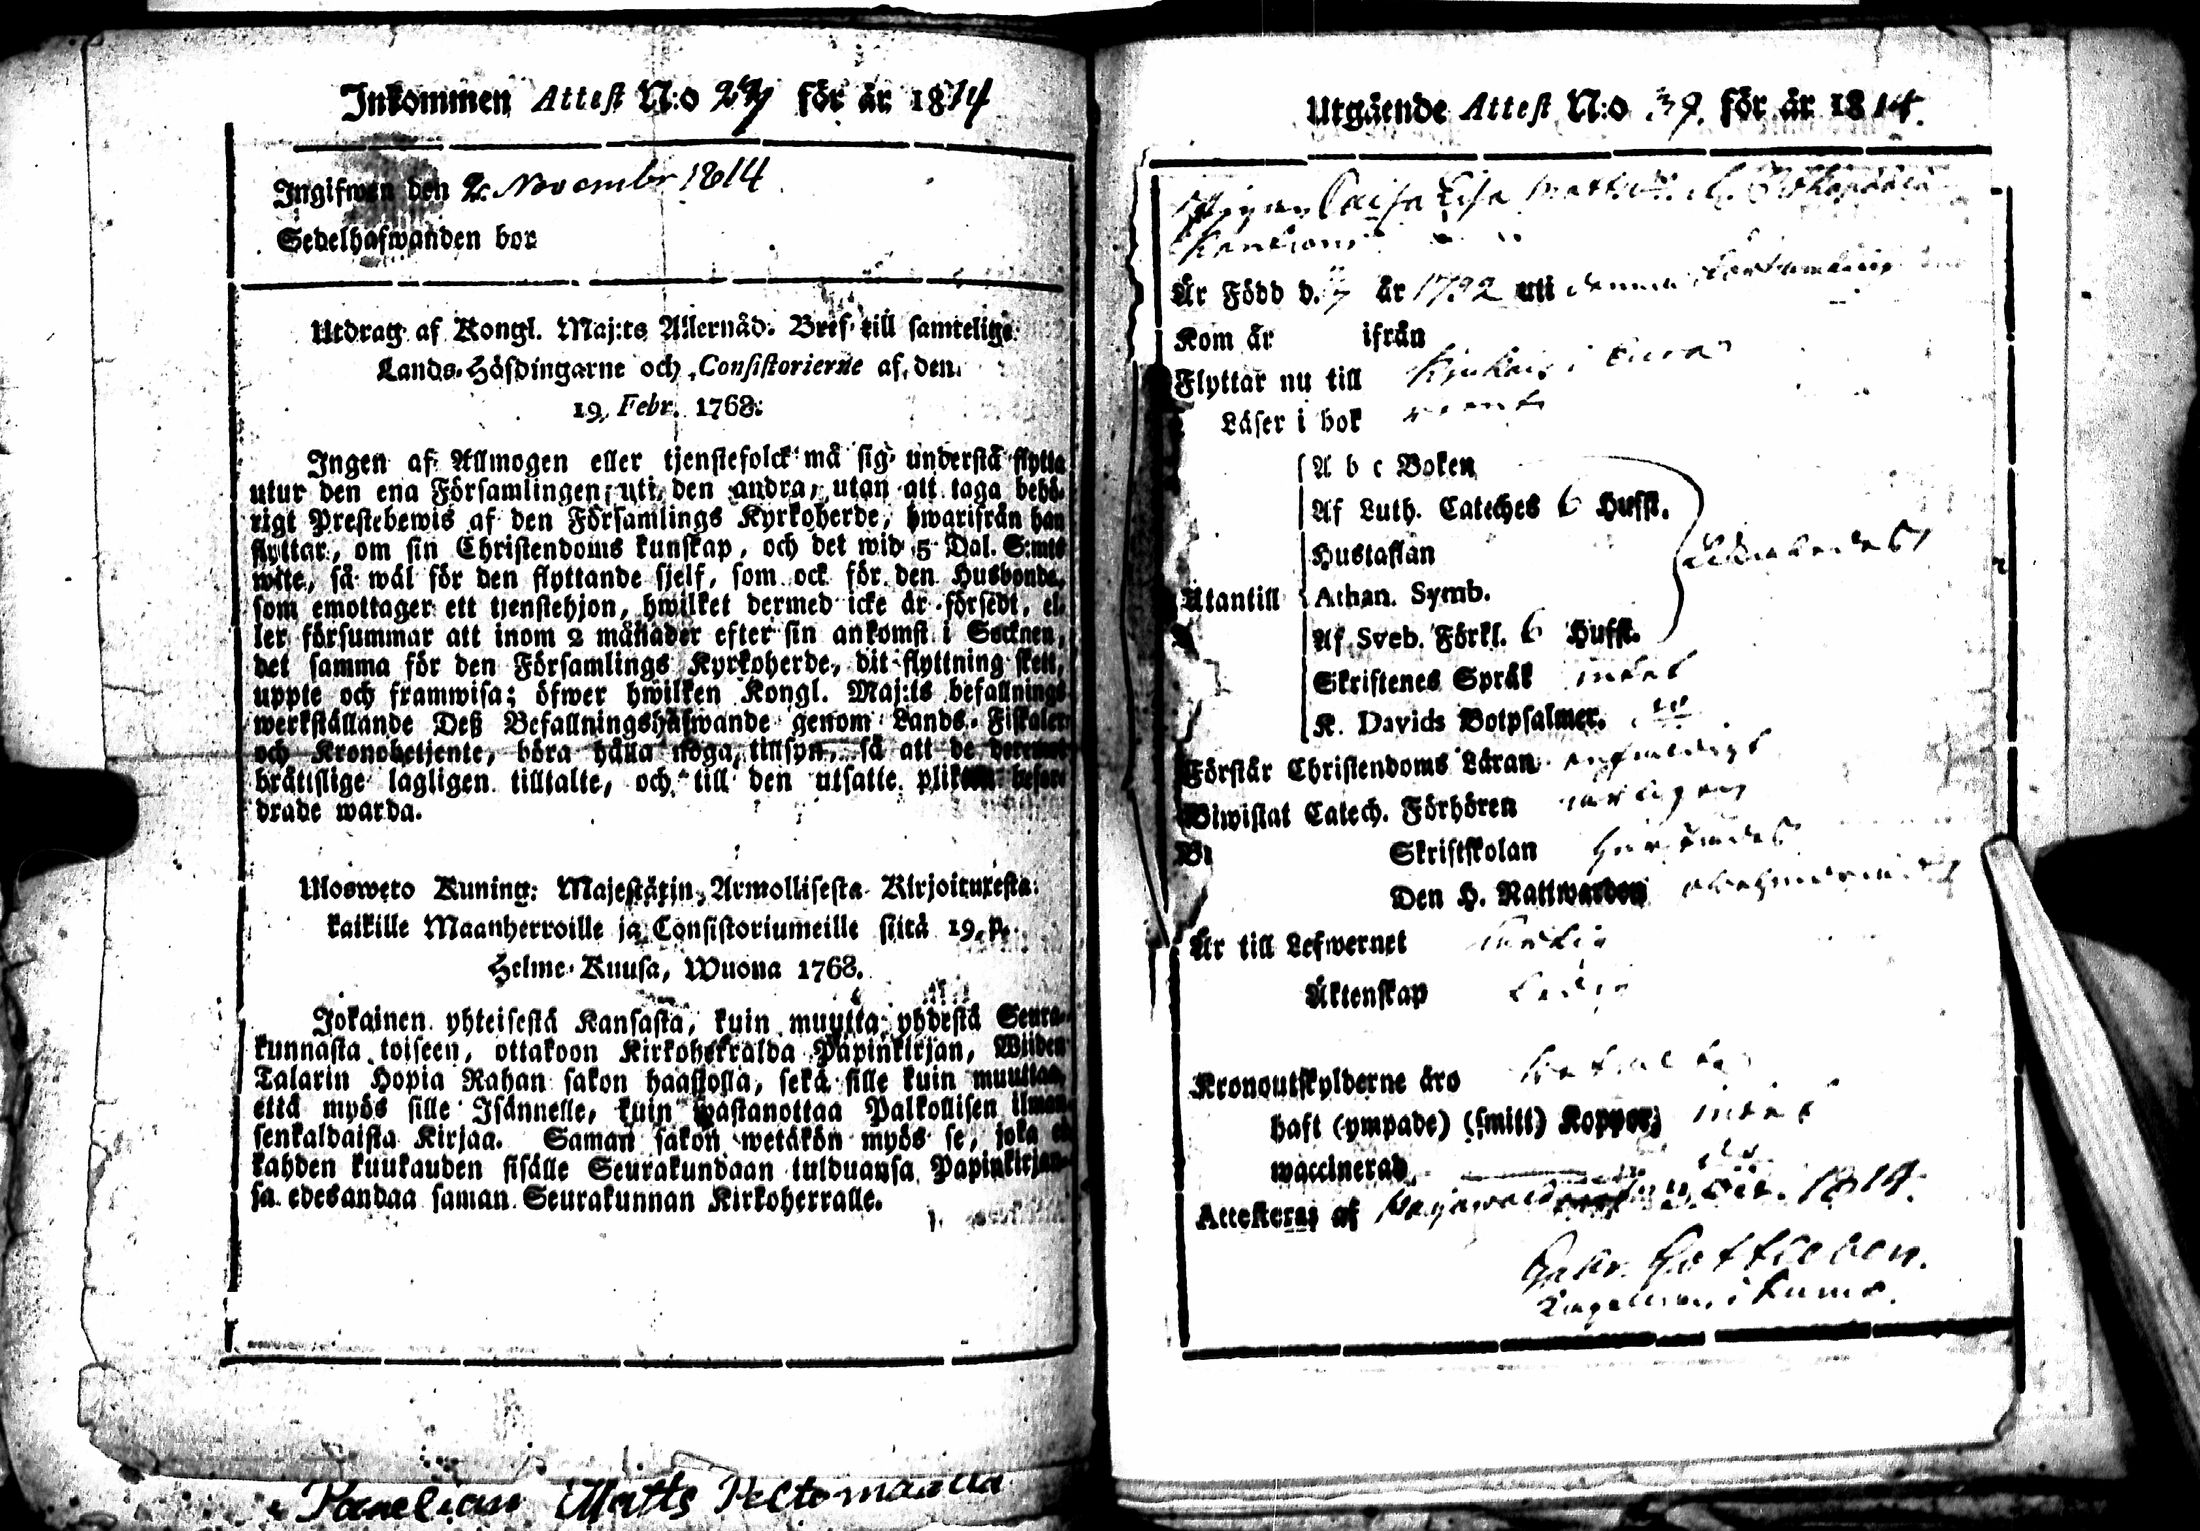 Inkommen Attest N:o 27 för år 1814
Ingifwen den 2. Novembr 1814
Sedelhafwanden bor
Utdrag af Kongl. Maj:ts Allernåd. Bref till samtelige
Lands-Höfdingarne och Consistorierne af den
19 Febr. 1768.
Ingen af Allmogen eller tjenstefolck må sig understå flytta
utur den ena Församlingen uti den andra, utan att taga behö-
rigt Prestebewis af den Församlings Kyrkoherde, hwarifrån han
flyttar, om sin Christendoms kunskap, och det wid 5 Dal. S:mts
wite, så wäl för den flyttande sjelf, som ock för den Husbonde,
som emottager ett tjenstehjon, hwilket dermed icke är försedt, el-
ler försummar att inom 2 månader efter sin ankomst i Socknen,
det samma för den Församlings Kyrkoherde, dit flyttning skett,
uppte och framwisa; öfwer hwilken Kongl. Maj:ts befallnings
werkställande Deß Befallningshafwande genom Lands-Fiskaler
och Kronobetjente, böra hålla noga tillsyn, så att de deremot
bråttslige lagligen tilltalte, och till den utsatte plikten befor-
drade warda.
Ulosweto Kuning: Majestätin Armollisesta Kirjoituxesta
kaikille Maanherroille ja Consistoriumeille siitä 19. p.
Helme-Kuusa, Wuona 1768.
Jokainen yhteisestä Kansasta, kuin muutta yhdestä Seura-
kunnasta toiseen, ottakoon Kirkoherralda Papinkirjan, Wiiden
Talarin Hopia Rahan sakon haastolla, sekä sille kuin muuttaa,
että myös sille Isännelle, kuin wastanottaa Palkollisen ilman
senkaldaista Kirjaa. Saman sakon wetäkön myös se, joka ei
kahden kuukauden sisälle Seurakundaan tulduansa Papinkirjan-
sa edesandaa saman Seurakunnan Kirkoherralle.
Matts Peltomäella
Utgående Attest N:o 39. för år 1814.
Pigan Caisa Lisa
Är Född d. 7 år 1792 uti denna Församling
Kom år ifrån
Flyttar nu till i Eura
Läser i bok rent
A b c Boken
Af Luth. Cateches 6 Hufst.
Hustaflan
Utantill Athan. Symb.
Af Sveb. Förkl. 6 Hufst.
Skriftenes Språk intet
K. Davids Botpsalmer.
Förstår Christendoms Läran enfaldigt
Biwistat Catech. Förhören årligen
Bi Skriftskolan
Den H. Nattwarden
Är till Lefwernet
Äktenskap Ledig
Kronoutskylderne äro betalte
haft (ympade) (smitt) Koppor; intet
waccinerad
Attesteras af 1814.
Gabr. Gottleben.
i Kumo.